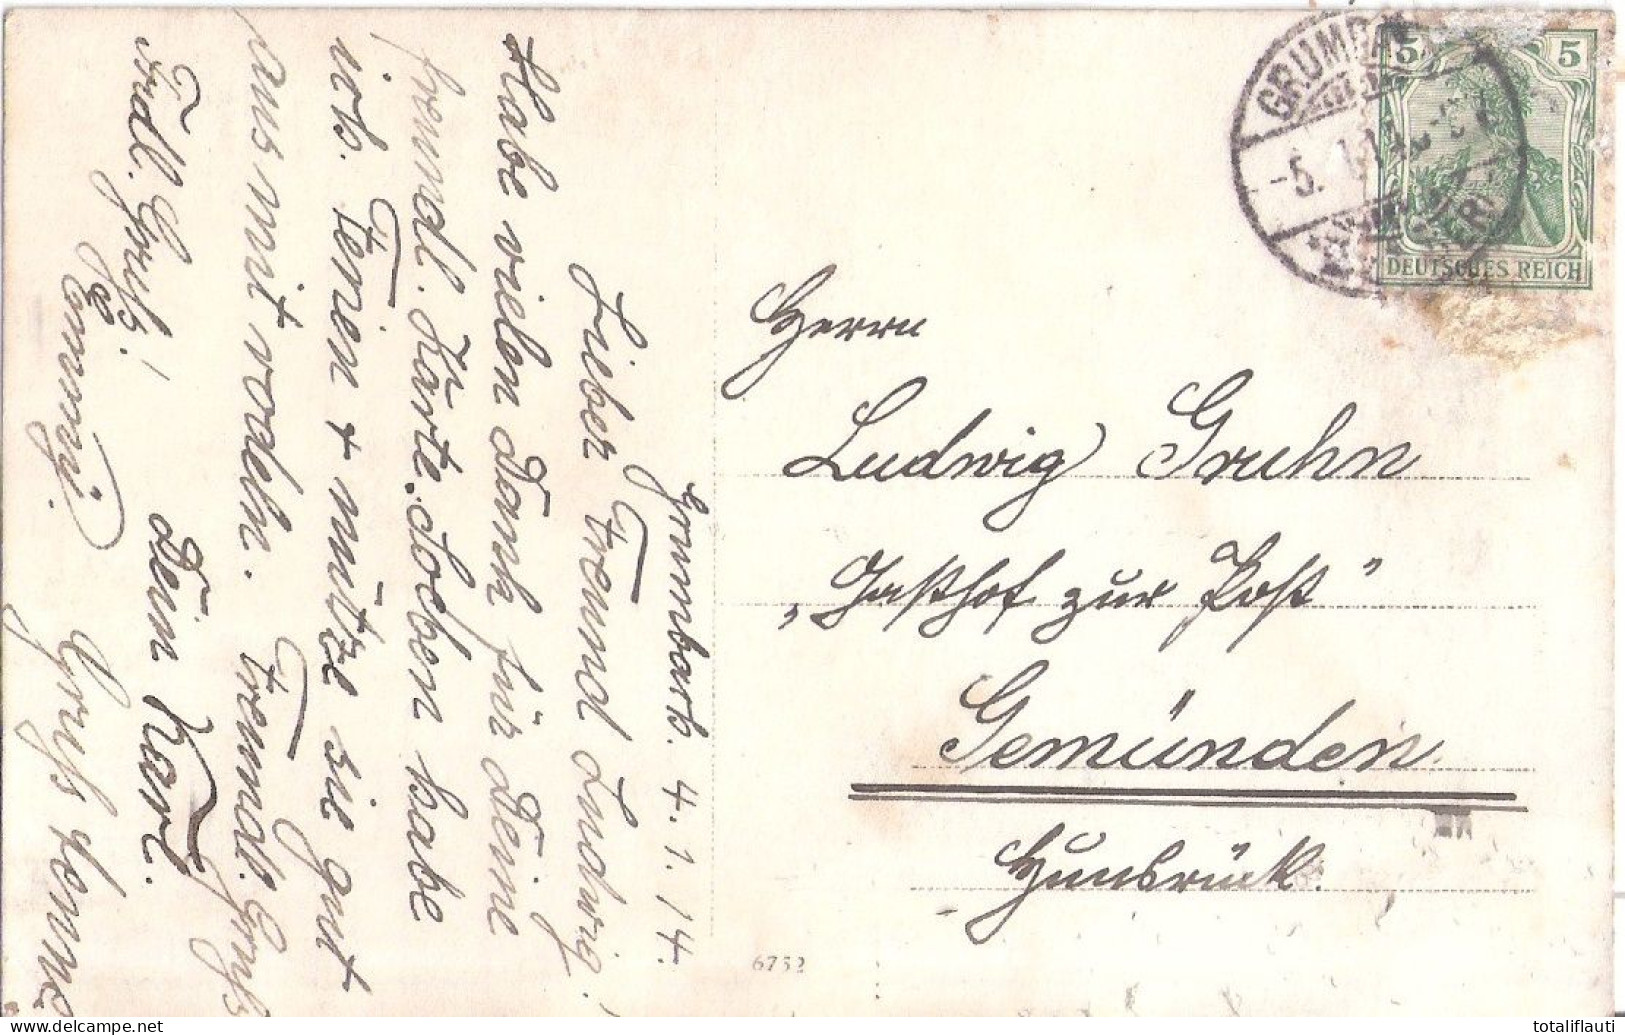 Grumbach. 4. 1. 14.
Lieber Freund Ludwig!
Habe vielen Dank für Deine
freundl. Karte. Soeben habe
ich Ferien + nütze sie gut
aus mit rodeln. Freundl. Gruß
Dein Karl.
Frdl. Gruß!
Emmy.
Gruß
GRUMBACH
-5. 1. 14
5 5
DEUTSCHES REICH
Herrn
Ludwig Gruhn
„Gasthof zur Post"
Gemünden
Hunsrück.
6752
www.delcampe.net
totaliflauti